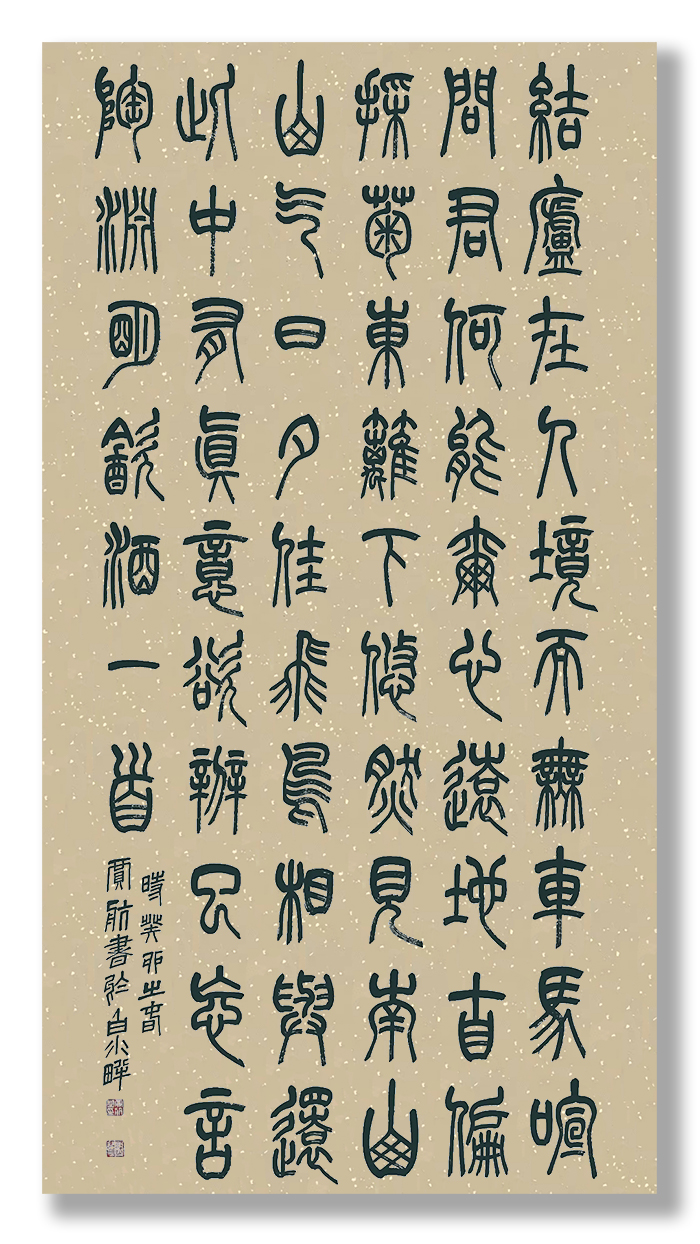 結廬在人境而無車馬喧
問君何能爾心遠地自偏
採菊東籬下悠然見南山
山气日夕佳飛鳥相與還
此中有真意欲辨已忘言
陶淵明飲酒一首
時癸卯之春
賈航書於白水畔